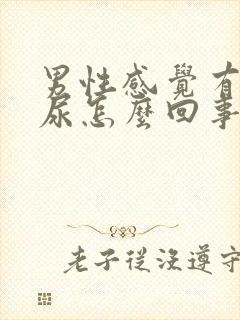 男性感覺有
尿怎麼回事
老子從沒遵守